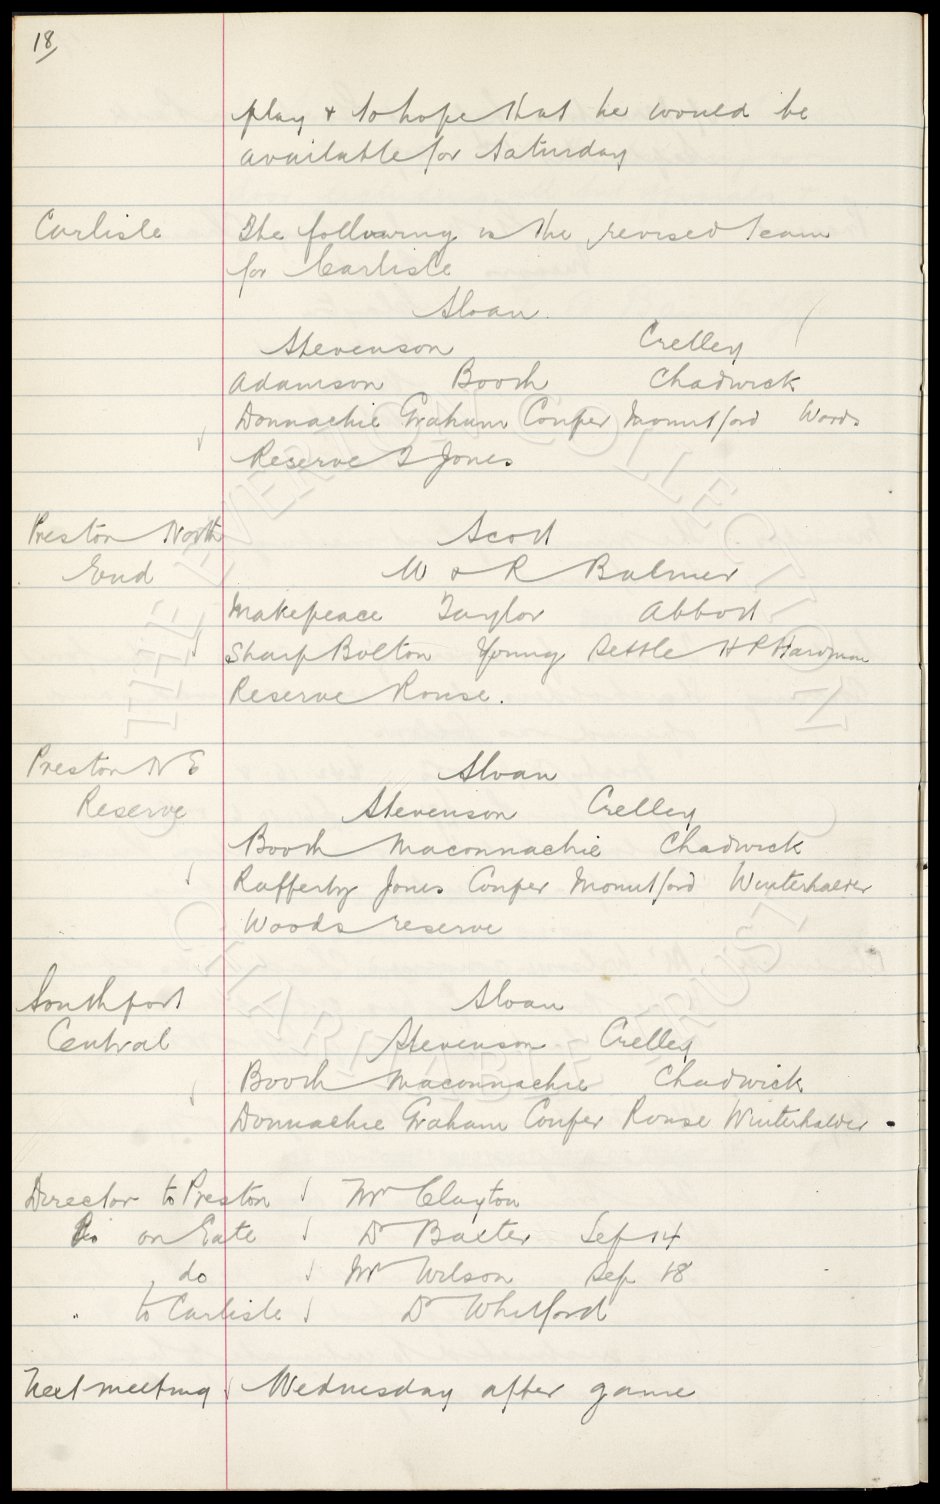 18
play & to hope that he would be
available for Saturday
Carlisle The following is the revised team
for Carlisle
Sloan.
Stevenson Crelley
Adamson Booth Chadwick
Donnachie Graham Couper Mountford Woods
Reserve T Jones
Preston North Scott
End W & R Balmer
Makepeace Taylor Abbott
Sharp Bolton Young Settle H P Hardman
Reserve Rouse.
Preston N E Sloan
Reserve Stevenson Crelley
Booth Maconnachie Chadwick
Rafferty Jones Couper Mountford Winterhalder
Woods reserve
Southport Sloan
Central Stevenson Crelley
Booth Maconnachie Chadwick
Donnachie Graham Couper Rouse Winterhalder
Director to Preston Mr Clayton
on Gate Dr Baxter Sep 14
do Mr Wilson Sep 18
to Carlisle Dr Whitford
Next meeting Wednesday after game
THE EVERTON COLLECTION
CHARITABLE TRUST